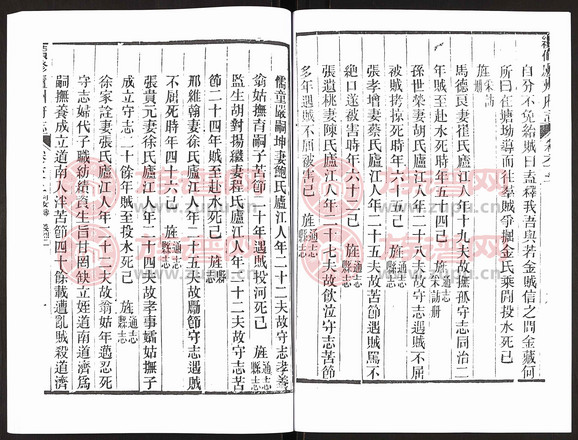 續修廬州府志
自分不免紿賊曰盍釋我吾與若金賊信之問金藏何
所曰在塘坳導而往羣賊爭掘金氏乘間投水死已
旌
馬德良妻崔氏廬江人年十九夫故撫孤守志同治二
年賊至赴水死時年五十四已 旌 通志
孫世榮妻胡氏廬江人年二十八夫故守志遇賊不屈
被賊拷掠死時年六十三已 旌
張孝增妻蔡氏廬江人年二十五夫故苦節遇賊罵不
絕口遂被害時年六十三已 旌 通志 縣志
張遺桃妻陳氏廬江人年二十七夫故飲泣守志苦節
多年遇賊不屈被害已 旌 通志 縣志
儒童嚴嗣坤妻鮑氏廬江人年二十二夫故守志孝養
翁姑撫育嗣子苦節二十年遇賊投河死已 旌 通志 縣志
監生胡對揚繼妻程氏廬江人年二十二夫故守志苦
節二十四年賊至赴水死已 旌 縣志
那維翰妻徐氏廬江人年二十五夫故勵節守志遇賊
不屈死時年四十六已 旌 通志 縣志
張貴元妻徐氏廬江人年二十四夫故孝事孀姑撫子
成立守志二十餘年賊至投水死已 旌 通志 縣志
徐家詮妻張氏廬江人年二十二夫故翁姑年邁忍死
守志婦代子職紡績資生旨甘罔缺立姪道南道濟爲
嗣撫養成立道南入泮苦節四十餘載遭亂賊殺道濟